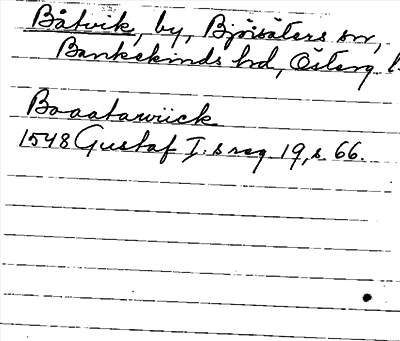 Båtvik, by, Björsäters sn,
Bankekinds hd, Österg l
Boaatawiick
1548 Gustaf I:s reg 19, s. 66.